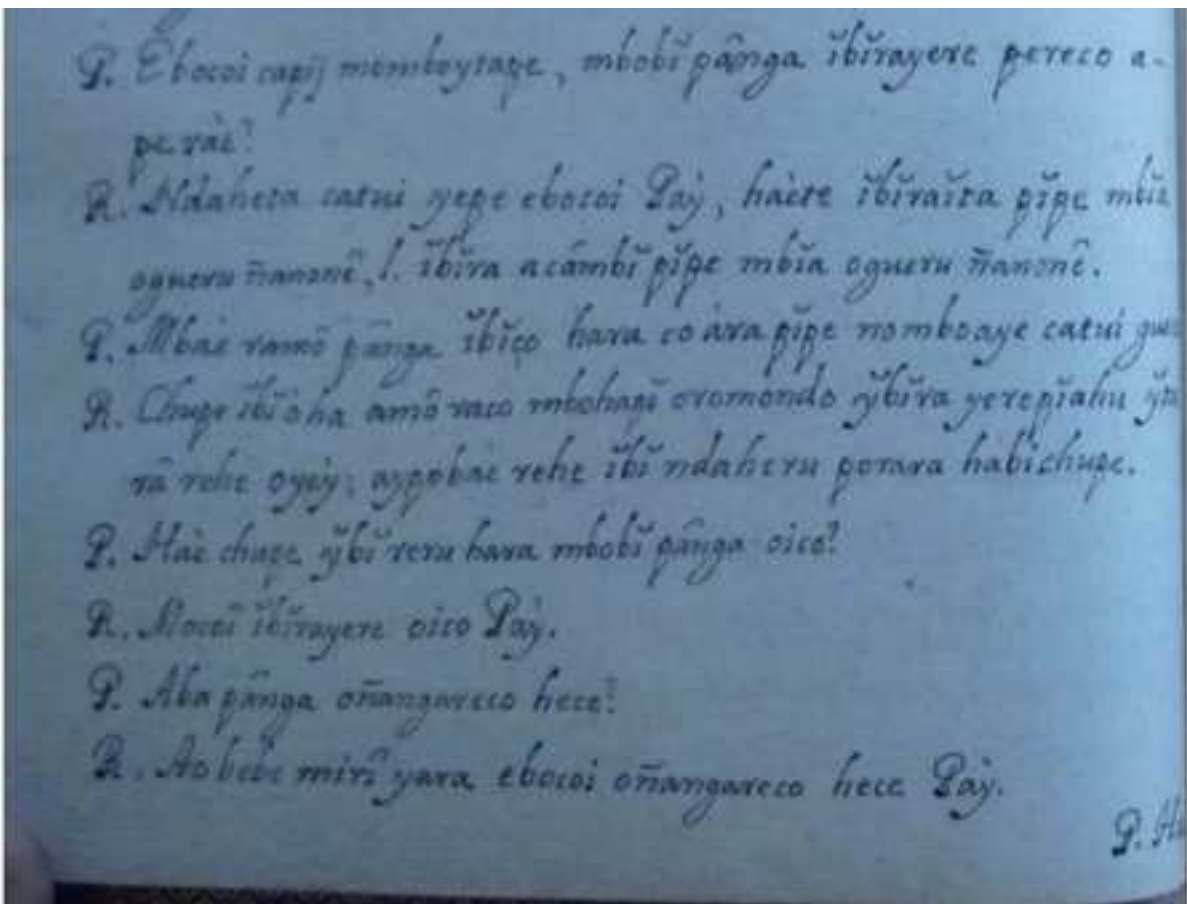 P. Ebocoi capij momboytape, mbobĭ pânga ĭbĭrayere pereco a-
pe raè?
R. Ndaheta catui yepe ebocoi Paỳ, haete ĭbĭraĭta pĭpe mbĭa
ogueru ñanonê, l. ĭbĭra acâmbĭ pĭpe mbĭa ogueru ñanonê.
P. Mbaè ramô pânga ĭbĭço hara co àra pĭpe nomboaye catui
R. Chupe ĭbĭ oha amô raco mbohapĭ oromondo ỹbĭra yerepĭahu
râ rehe oyeỳ; aypobae rehe ĭbĭ ndaheru porara habi chupe.
P. Haè chupe ỹbĭ reru hara mbobĭ pânga oico?
R. Mocoî ĭbĭrayere oico Paỳ.
P. Aba pânga oñangareco hece?
R. Ao bebe mirî yara ebocoi oñangareco hece Paỳ.
P.